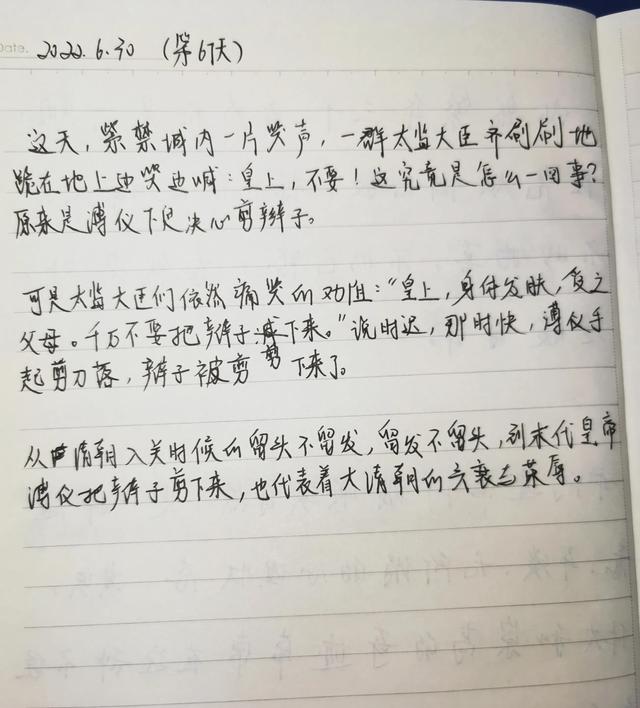 Date. 2022.6.30 (第67天)
这天,紫禁城内一片哭声,一群太监大臣齐刷刷地
跪在地上边哭边喊:皇上,不要!这究竟是怎么一回事?
原来是溥仪下定决心剪辫子。
可是太监大臣们依然痛哭的劝阻:“皇上,身体发肤,受之
父母。千万不要把辫子下来。”说时迟,那时快,溥仪手
起剪刀落,辫子被剪剪下来了。
从清朝入关时候的留头不留发,留发不留头,到末代皇帝
溥仪把辫子剪下来,也代表着大清朝的兴衰与荣辱。